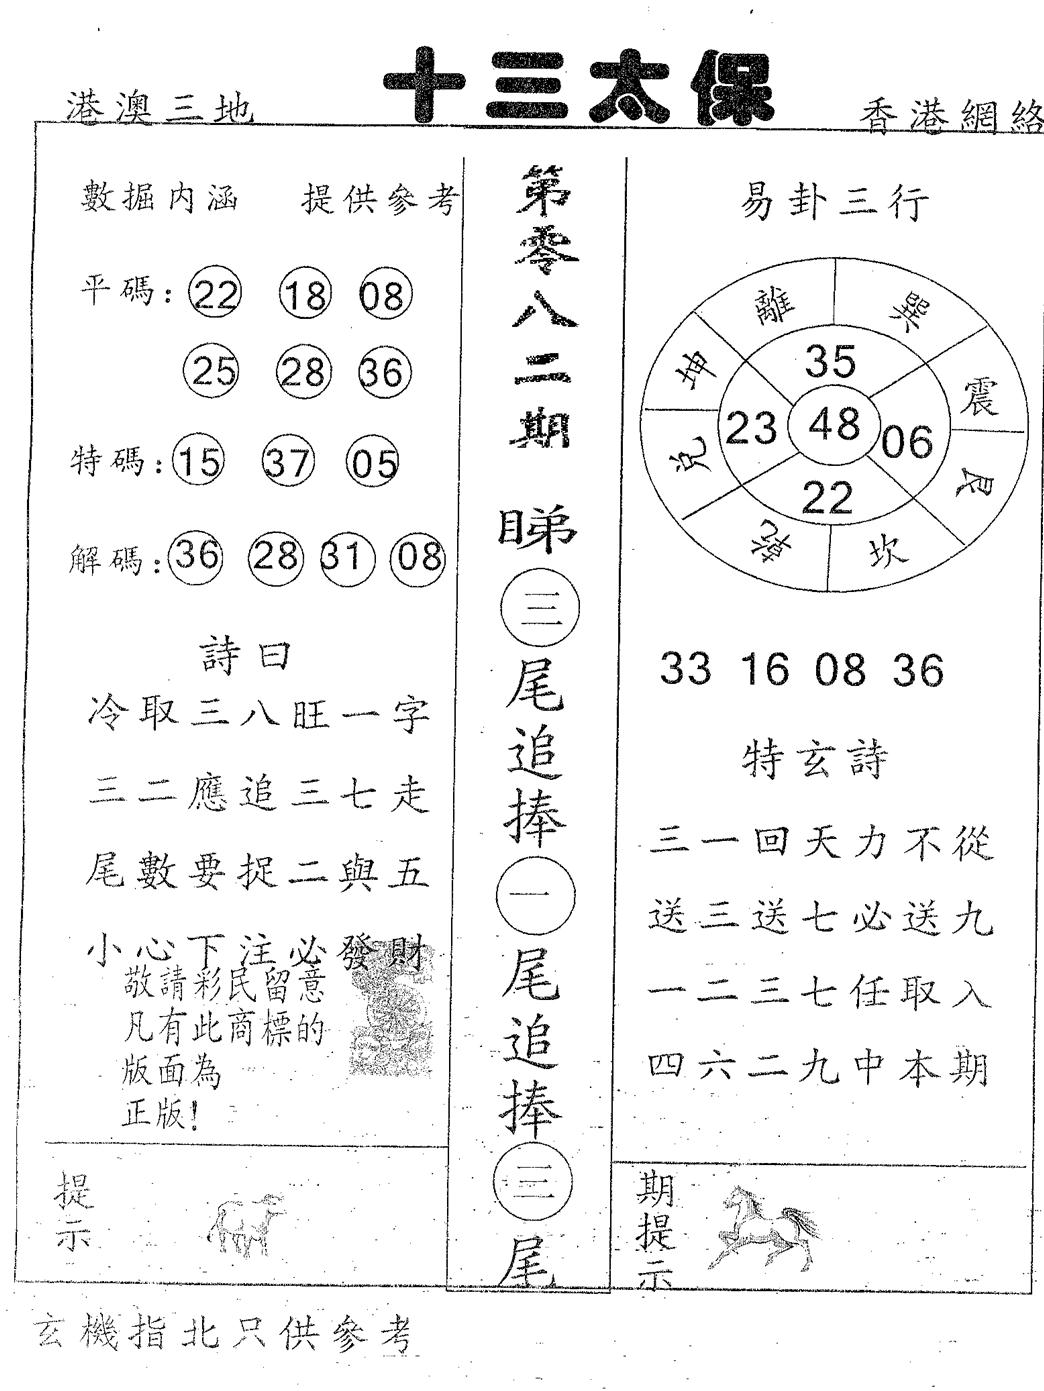 十三太保
港澳三地
香港網絡
數掘内涵 提供參考
平碼: 22 18 08
25 28 36
特碼: 15 37 05
解碼: 36 28 31 08
詩曰
冷取三八旺一字
三二應追三七走
尾數要捉二與五
小心下注必發財
敬請彩民留意
凡有此商標的
版面為
正版!
提示
第零八二期
睇㊂尾追捧㊀尾追捧㊂尾
易卦三行
離 巽
坤 35 震
23 48 06
兌 22 艮
乾 坎
33 16 08 36
特玄詩
三一回天力不從
送三送七必送九
一二三七任取入
四六二九中本期
期提示
玄機指北只供參考